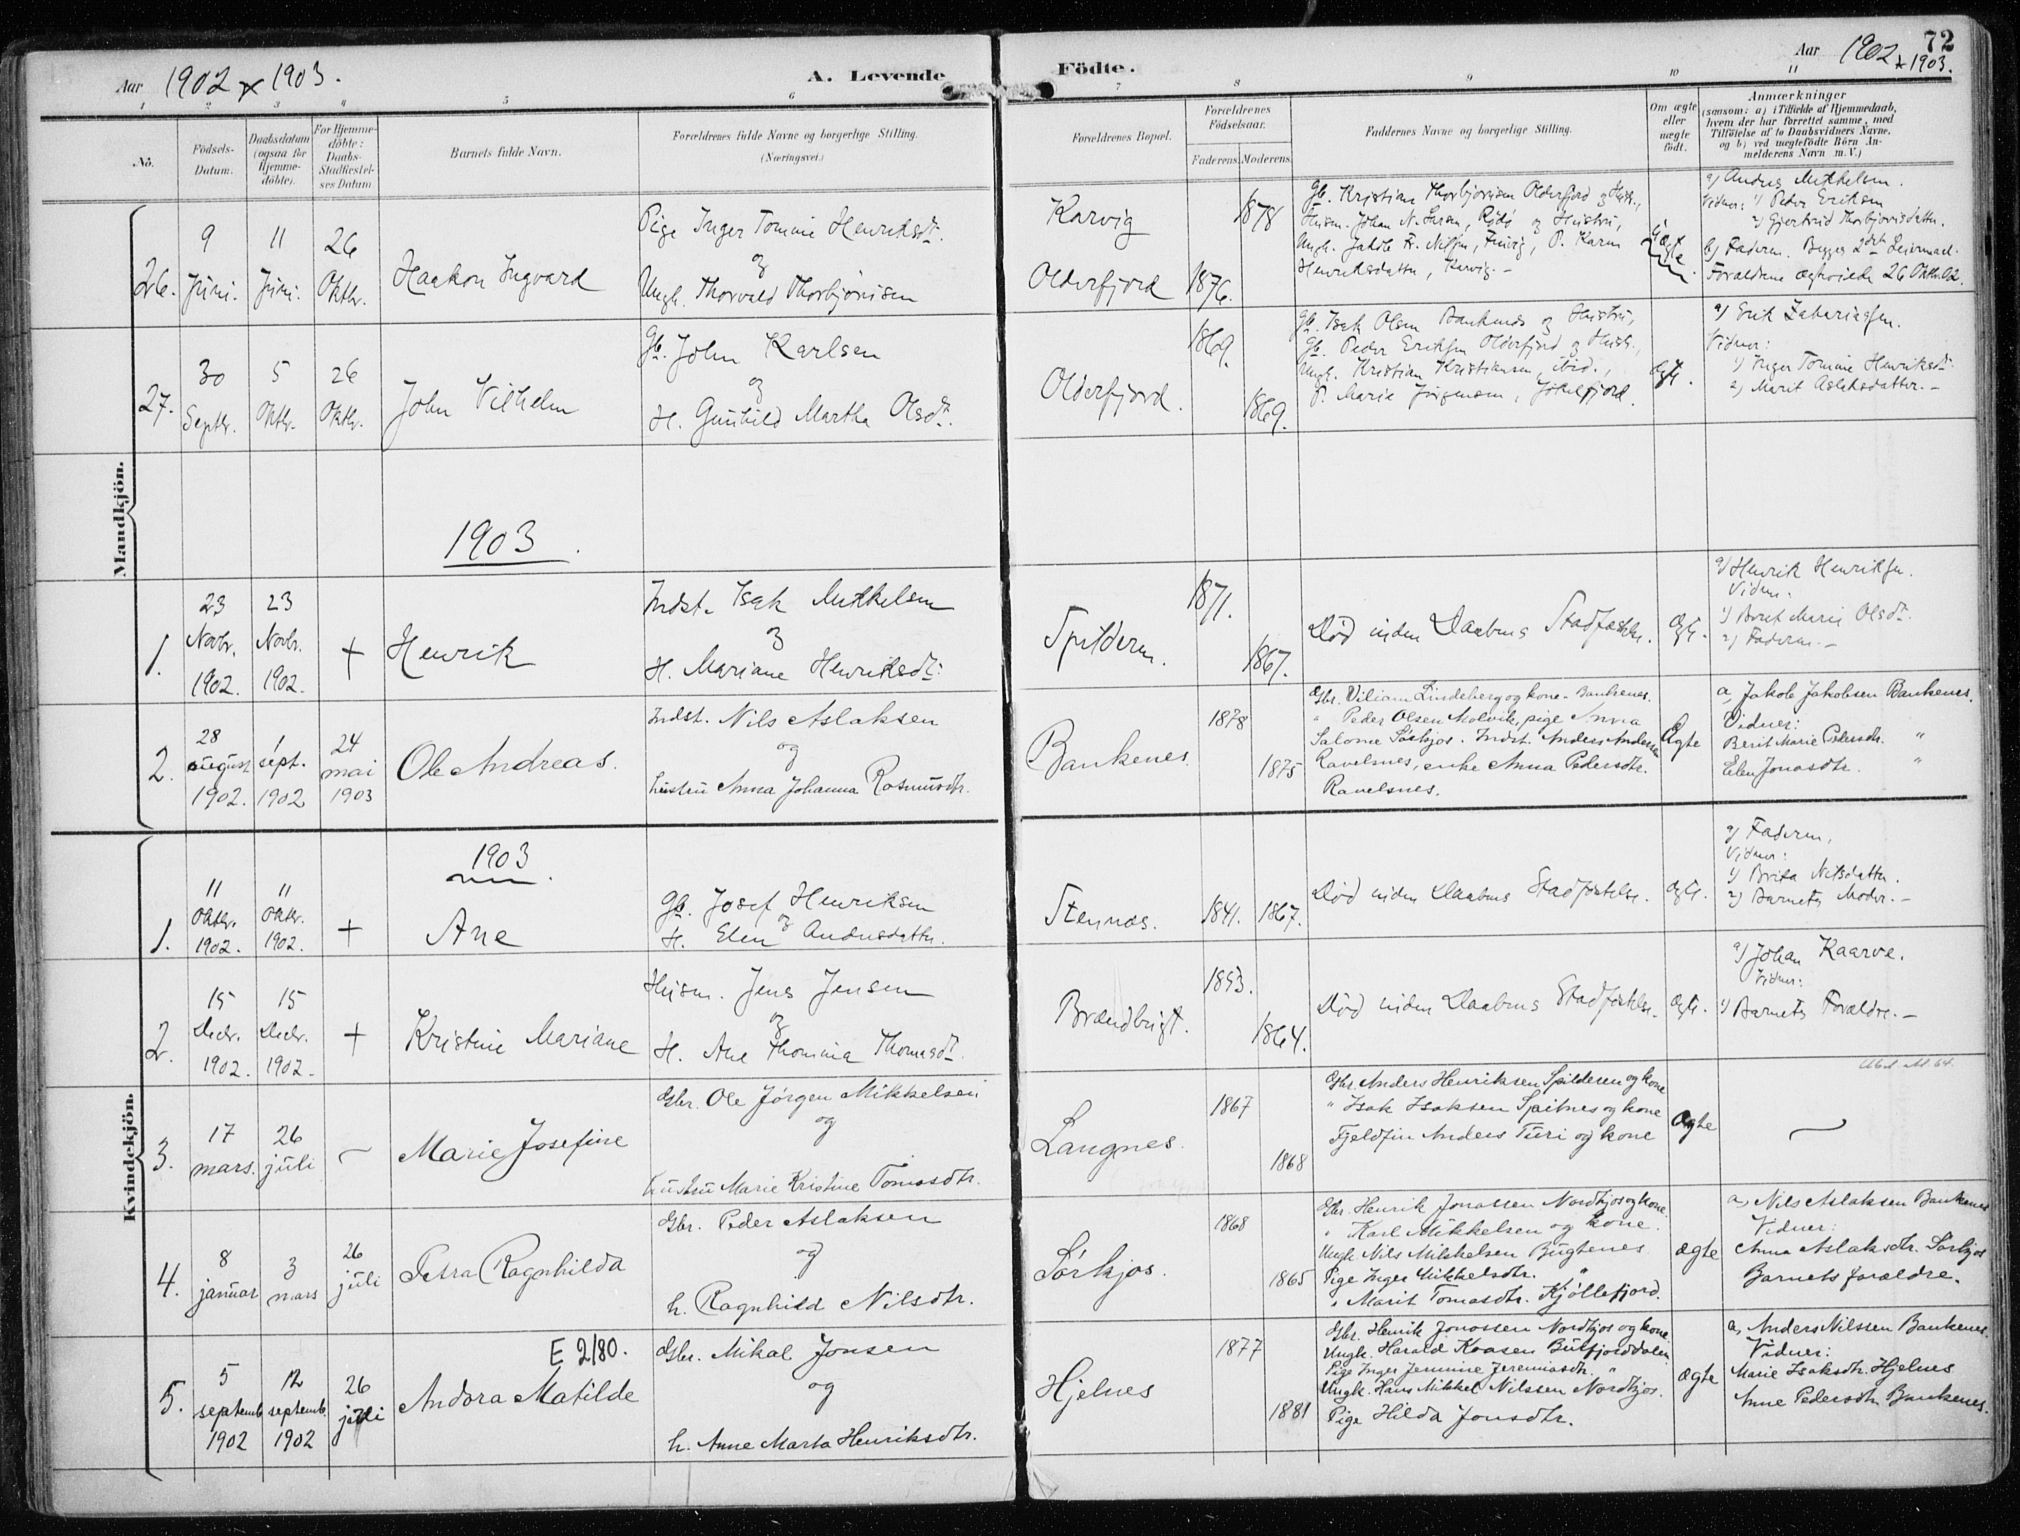 Aar 1902 & 1903.
A. Levende Födte.
Aar 1902 & 1903.
72
1 2 3 4 5 6 7 8 9 10 11
No.
Födsels-Datum.
Daabsdatum (ogsaa for Hjemme-döbte).
For Hjemme-döbte: Daabs-Stadfæstel-ses Datum
Barnets fulde Navn.
Forældrenes fulde Navne og borgerlige Stilling.
(Næringsvei.)
Forældrenes Bopæl.
Forældrenes Födselsaar.
Faderens. Moderens.
Faddernes Navne og borgerlige Stilling.
Om ægte eller uægte födt.
Anmærkninger
(saasom: a) i Tilfælde af Hjemmedaab,
hvem der har forrettet samme, med
Tilföielse af to Daabsvidners Navne,
og b) ved uægtefödte Börn An-
melderens Navn m. V.)
Mandkjön.
26.
9 Juni.
11 Juni.
26 Oktbr.
Haakon Ingvard
Pige Inger Tomine Henriksdtr.
og
Ungk. Thorvald Thorbjörnsen
Karvig
Olderfjord
1876.
1878
Gb. Kristian Thorbjörnsen Olderfjord og Hustr.,
Husm. Johan N. Larsen, Rödö og Hustru,
Ungk. Jakob Fr. Nilsen, Finvig, P. Karen
Henriksdatter, Karvig. –
Uægte
a) Anders Mikkelsen.
Vidner: 1) Peder Eriksen
2) Gjertrud Thorbjörnsdatter.
b) Faderen. Begges 2det Leiermaal.
Forældrene ægteviede 26 Oktbr. 02.
27.
30 Septbr.
5 Oktbr.
26 Oktbr.
John Vilhelm
Gb. John Karlsen
og
H. Gunhild Martha Olsdtr.
Olderfjord.
1869.
1869.
Gb. Isak Olsen Bankenes og Hustru,
Gb. Peder Eriksen Olderfjord og Hustr.,
Ungk. Kristian Kristiansen, ibid.,
P. Marie Jörgensen, Jökelfjord.
Ægte.
a) Erik Zakariassen.
Vidner:
1) Inger Tomine Henriksdtr.
2) Marit Aslaksdatter. –
1903.
1.
23 Novbr. 1902.
23 Novbr. 1902.
+
Henrik
Indst. Isak Mikkelsen
og
H. Mariane Henriksdtr.
Spilderen.
1871.
1867.
Död inden Daabens Stadfæstelse.
Ægte.
a) Henrik Henriksen.
Vidner.
1) Berit Marie Olsdtr.
2) Faderen. –
2.
28 august 1902.
1 sept. 1902
24 mai 1903
Ole Andreas.
Indst. Nils Aslaksen
og
hustru Anna Johanna Rasmusdtr.
Bankenes.
1878
1875
Gbr. Viliam Lindeberg og kone. Bankenes.
" Peder Olsen Molvik, pige Anna
Salome Sörkjos. Indst. Anders Andersen
Ravelsnes, enke Anna Pedersdtr.
Ravelsnes.
Ægte
a, Jakob Jakobsen Bankenes.
Vidner:
Berit Marie Pedersdtr. "
Elen Jonasdtr. "
Kvindekjön.
1903.
1.
11 Oktbr. 1902.
11 Oktbr. 1902.
+
Ane
Gb. Josef Henriksen
og
H. Elen Andersdatter.
Stennæs.
1841.
1867.
Död inden Daabens Stadfæstelse.
Ægte.
a) Faderen.
Vidner:
1) Brita Nilsdatter.
2) Barnets Moder. –
2.
15 Decbr. 1902.
15 Decbr. 1902.
+
Kristine Mariane
Husm. Jens Jensen
og
H. Ane Thomina Thomasdtr.
Brændbugt.
1853.
1864.
Död inden Daabens Stadfæstelse.
Ægte.
a) Johan Kaarve.
Vidner:
1) Barnets Forældre. –
3.
17 mars.
26 juli
–
Marie Josefine
Gbr. Ole Jörgen Mikkelsen
og
hustru Marie Kristine Tomasdtr.
Langnes.
1867
1868
Gbr. Anders Henriksen Spilderen og kone
" Isak Isaksen Spaitnes og kone
Fjeldfin Anders Turi og kone
Ægte
–
4.
8 januar
3 mars
26 juli
Petra Ragnhilda
Gbr. Peder Aslaksen
og
h. Ragnhild Nilsdtr.
Sörkjos.
1868
1865
Gbr. Henrik Jonassen Nordkjos og kone.
" Karl Mikkelsen og kone.
Ungk. Nils Mikkelsen Bugtenes.
Pige Inger Mikkelsdtr. "
" Marit Tomasdtr. Kjöllefjord.
ægte
a, Nils Aslaksen Bankenes
Vidner:
Anna Aslaksdtr. Sörkjos
Barnets forældre.
E 2/80.
5.
5 septemb 1902
12 septemb. 1902
26 juli
Andora Matilde
Gbr. Mikal Jonsen
og
h. Anne Marta Henriksdtr.
Hjelnes
1877
1881
Gbr. Henrik Jonassen Nordkjos og kone.
Ungk. Harald Kaasen Bulfjorddalen
Pige Inger Jenmine Jeremiasdtr. "
Ungk. Hans Mikkel Nilssen Nordkjos.
Pige Hilda Jonsdtr.
ægte
a, Anders Nilssen Bankenes.
Vidner:
Marie Isaksdtr. Hjelnes
Anne Pedersdtr Bankenes.